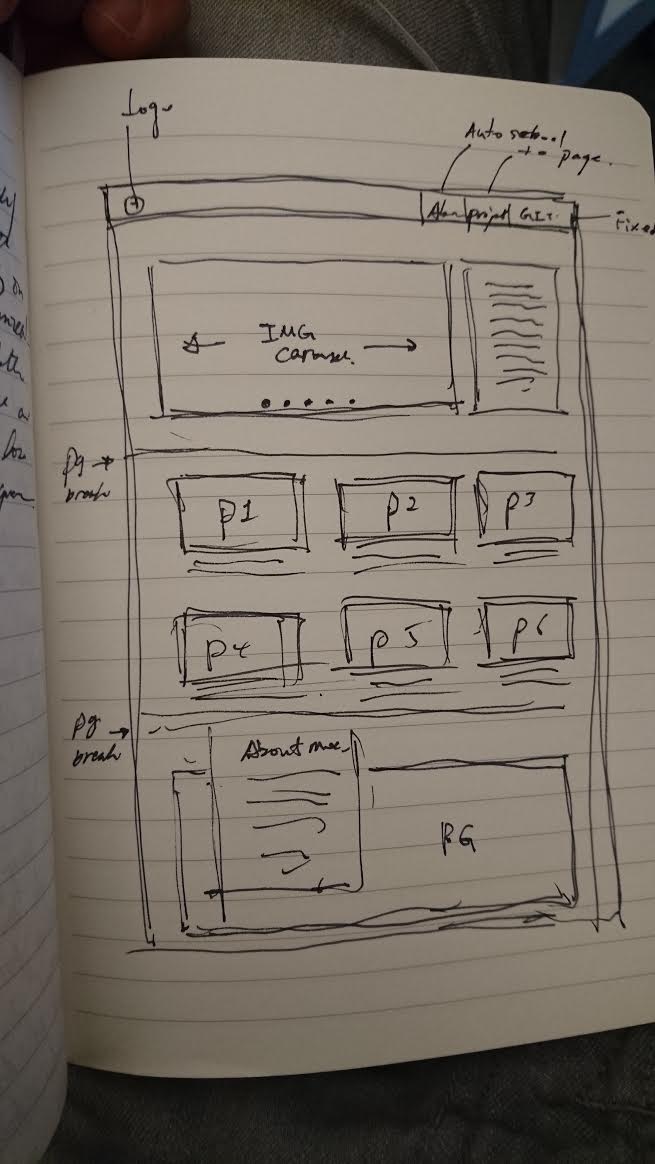 Logo
Auto scrool
to page.
Abou project GIT.
Fixed
IMG
carousel.
pg
break
P1 P2 P3
P4 P5 P6
pg
break
About me.
BG
on